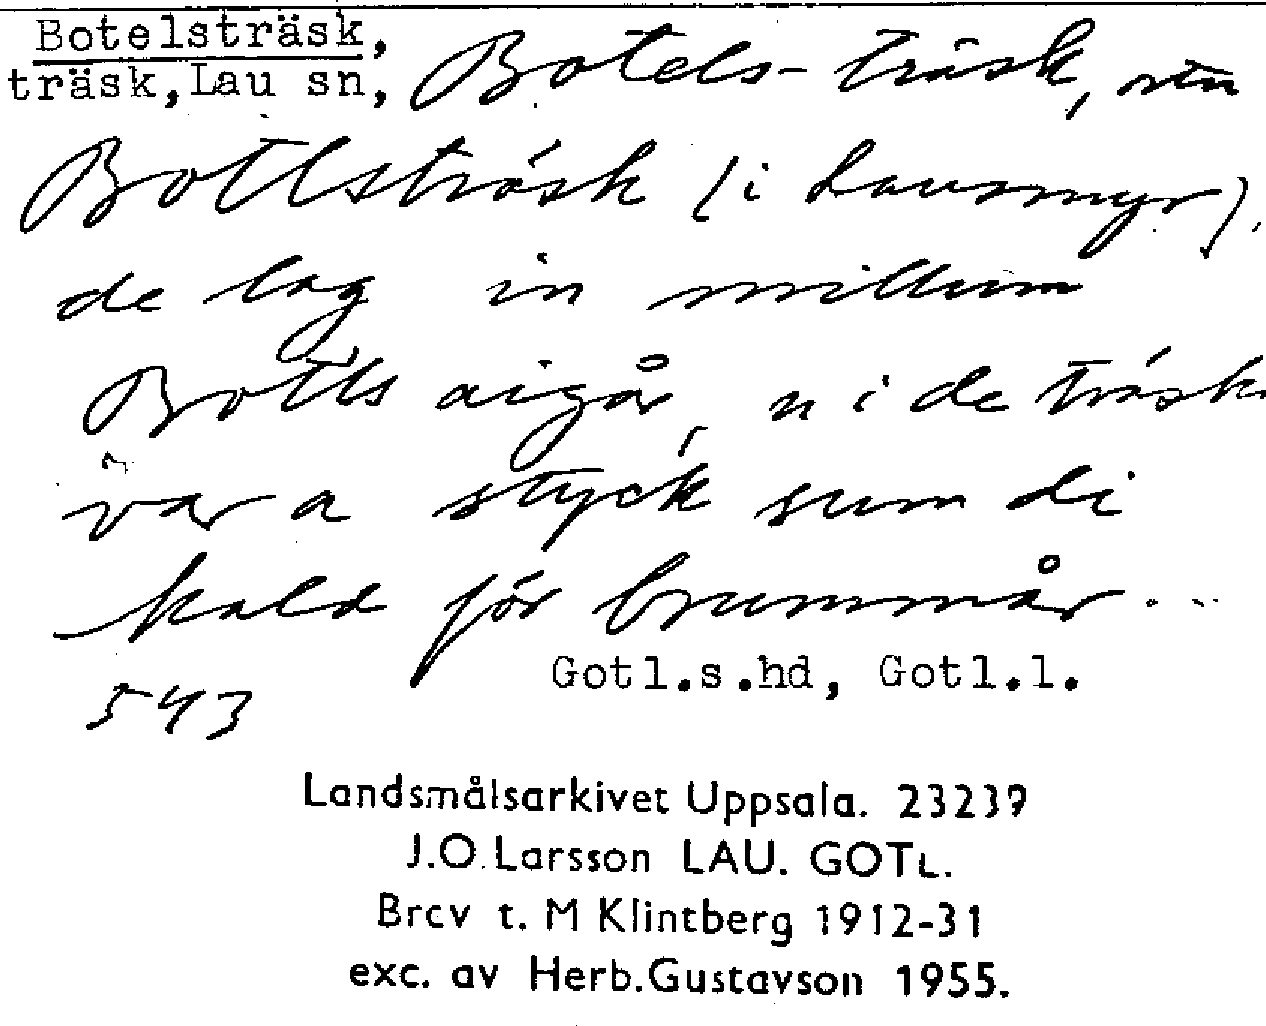 Botelsträsk,
träsk, Lau sn, Botels-träsk,
Bottlsträsk (i Lausmyr).
de lag in millum
Bottls aigår, u i de träske
var a styck sum di
kald för brummår...
543
Gotl.s.hd, Gotl.l.
Landsmålsarkivet Uppsala. 23239
J.O. Larsson LAU. GOTL.
Brev t. M Klintberg 1912-31
exc. av Herb.Gustavson 1955.